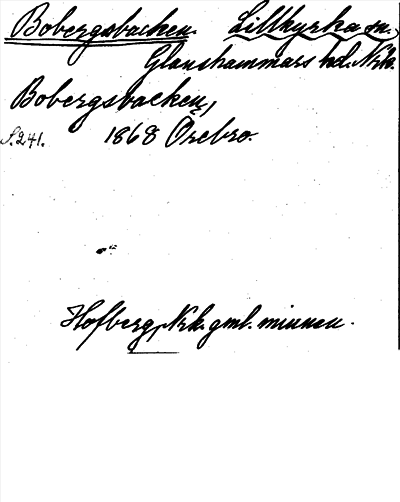 Bobergsbacken. Lillkyrka sn.,
Glanshammars hd. Nrk.
Bobergsbacken,
S. 241. 1868 Örebro.
Hofberg, Nrk. gml. minnen.